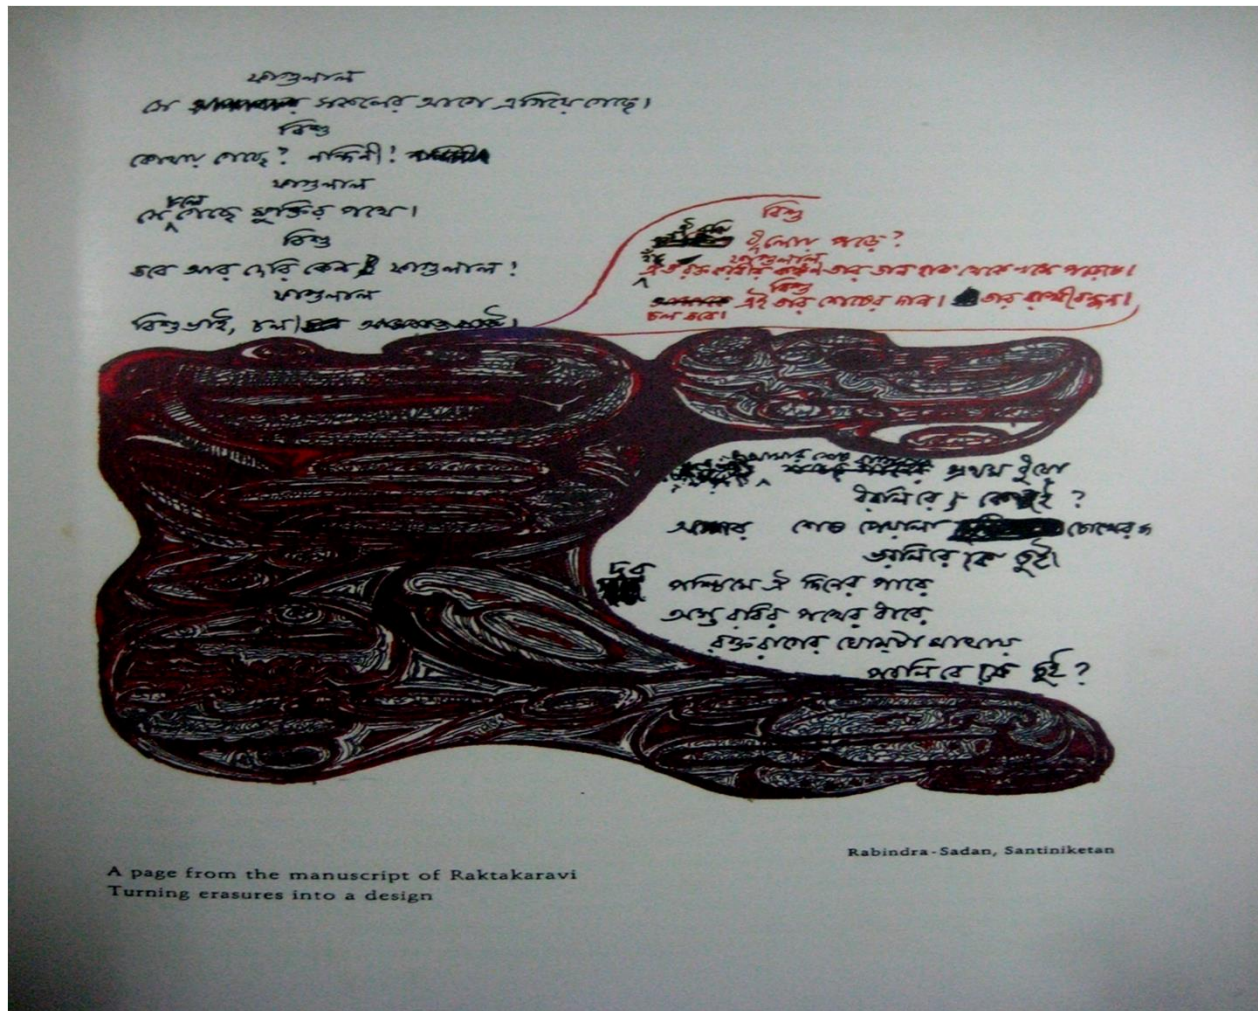 ফাগুলাল
সে সকলের আগে এগিয়ে গেছে।
বিশু
কোথায় গেছে? নন্দিনী!
ফাগুলাল
সে চলে গেছে মুক্তির পথে।
বিশু
তবে আর দেরি কেন ফাগুলাল!
ফাগুলাল
বিশুভাই, চল।
বিশু
ধূলোয় পড়ে?
ফাগুলাল
রক্তকরবীর কঙ্কণ তার ডান হাত থেকে খসে পড়েছে।
বিশু
এই তার শেষের দান। তার
চল তবে।
প্রথম ছুঁয়ে
ধরলি রে কে তুই?
আমার শেষ পেয়ালা চোখের
ভরলি রে কে তুই।
দূর পশ্চিমে ঐ দিনের পারে
অস্ত রবির পথের ধারে
রক্তরাগের ঘোমটা মাথায়
পরলি রে কে তুই?
Rabindra-Sadan, Santiniketan
A page from the manuscript of Raktakaravi
Turning erasures into a design